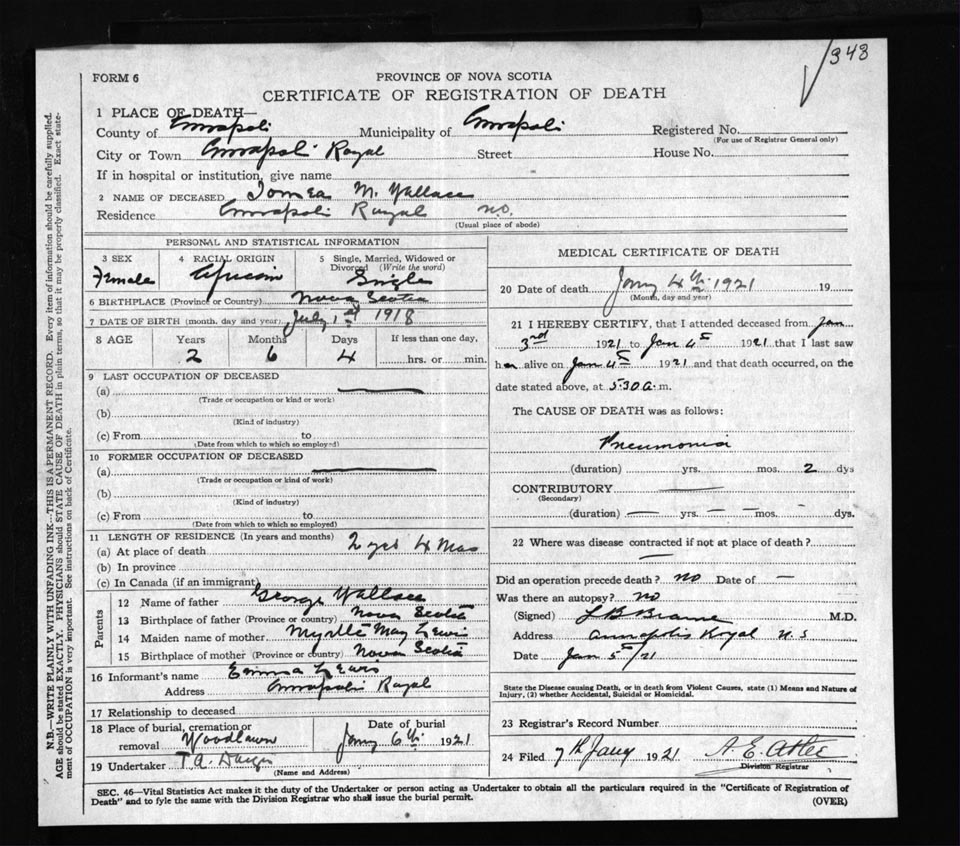 348
FORM 6
PROVINCE OF NOVA SCOTIA
CERTIFICATE OF REGISTRATION OF DEATH
1 PLACE OF DEATH—
County of Annapolis Municipality of Annapolis Registered No.
(For use of Registrar General only)
City or Town Annapolis Royal Street House No.
If in hospital or institution, give name
2 NAME OF DECEASED M. Wallace
Residence Annapolis Royal N.S.
(Usual place of abode)
PERSONAL AND STATISTICAL INFORMATION
3 SEX 4 RACIAL ORIGIN 5 Single, Married, Widowed or Divorced (Write the word)
Female African Single
6 BIRTHPLACE (Province or Country) Nova Scotia
7 DATE OF BIRTH (month, day and year) July 1st 1918
8 AGE Years Months Days If less than one day,
2 6 4 hrs. or min.
9 LAST OCCUPATION OF DECEASED
(a)
(Trade or occupation or kind or work)
(b)
(Kind of industry)
(c) From to
(Date from which to which so employed)
10 FORMER OCCUPATION OF DECEASED
(a)
(Trade or occupation or kind of work)
(b)
(Kind of industry)
(c) From to
(Date from which to which so employed)
11 LENGTH OF RESIDENCE (In years and months)
(a) At place of death 2 yrs 4 Mos
(b) In province
(c) In Canada (if an immigrant)
Parents
12 Name of father George Wallace
13 Birthplace of father (Province or country) Nova Scotia
14 Maiden name of mother Myrtle May Lewis
15 Birthplace of mother (Province or country) Nova Scotia
16 Informant's name Emma Lewis
Address Annapolis Royal
17 Relationship to deceased
18 Place of burial, cremation or removal Woodlawn
Date of burial Jany 6th 1921
19 Undertaker T. A.
(Name and Address)
MEDICAL CERTIFICATE OF DEATH
20 Date of death Jany 4th 1921 19
(Month, day and year)
21 I HEREBY CERTIFY, that I attended deceased from Jan
3rd 1921 to Jan 4th 1921 that I last saw
her alive on Jan 4th 1921 and that death occurred, on the
date stated above, at 5.30 a. m.
The CAUSE OF DEATH was as follows:
Pneumonia
(duration) yrs. mos. 2 dys
CONTRIBUTORY
(Secondary)
(duration) — yrs. — mos. — dys.
22 Where was disease contracted if not at place of death?
—
Did an operation precede death? no Date of —
Was there an autopsy? no
(Signed) L B M.D.
Address Annapolis Royal N.S
Date Jan 5th/21
State the Disease causing Death, or in death from Violent Causes, state (1) Means and Nature of
Injury, (2) whether Accidental, Suicidal or Homicidal.
23 Registrar's Record Number
24 Filed 7th Jany 1921 A. E. Atlee
Division Registrar
SEC. 46—Vital Statistics Act makes it the duty of the Undertaker or person acting as Undertaker to obtain all the particulars required in the "Certificate of Registration of
Death" and to fyle the same with the Division Registrar who shall issue the burial permit.
(OVER)
N.B.—WRITE PLAINLY WITH UNFADING INK—THIS IS A PERMANENT RECORD. Every item of information should be carefully supplied.
AGE should be stated EXACTLY. PHYSICIANS should STATE CAUSE OF DEATH in plain terms, so that it may be properly classified. Exact state-
ment of OCCUPATION is very important. See instructions on back of Certificate.